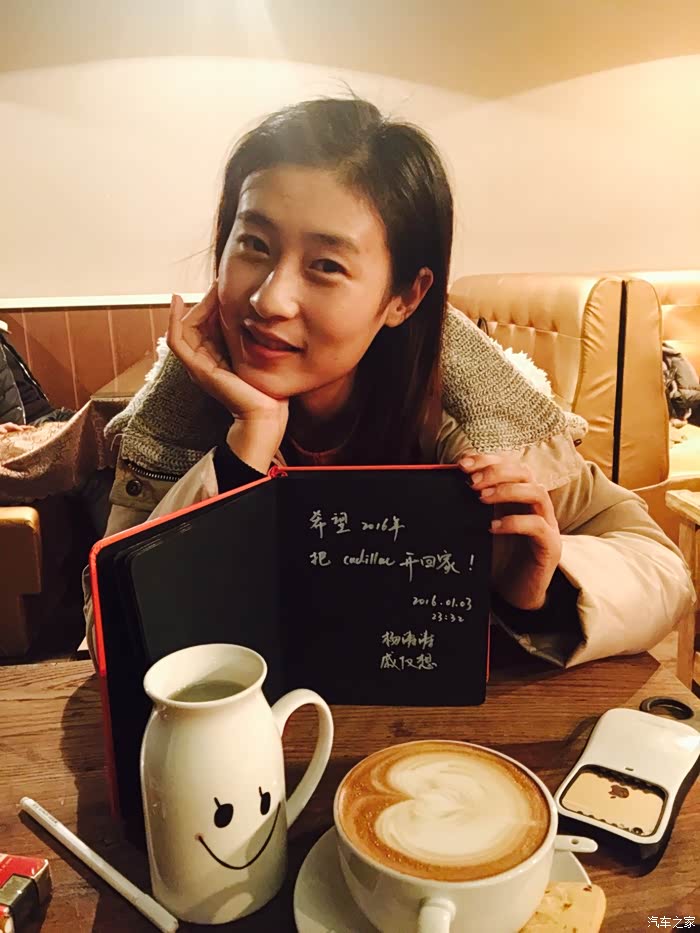 希望 2016年
把 cadillac 开回家！
2016.01.03
23:32
汽车之家